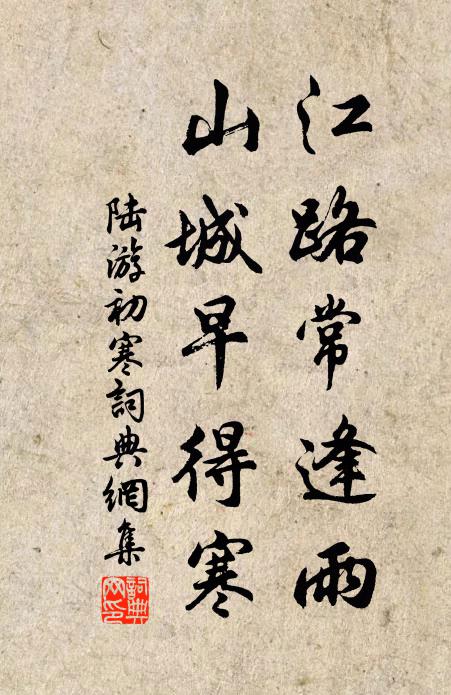 江路常逢雨
山城早得寒
陆游初寒詞典網集
詞典网印